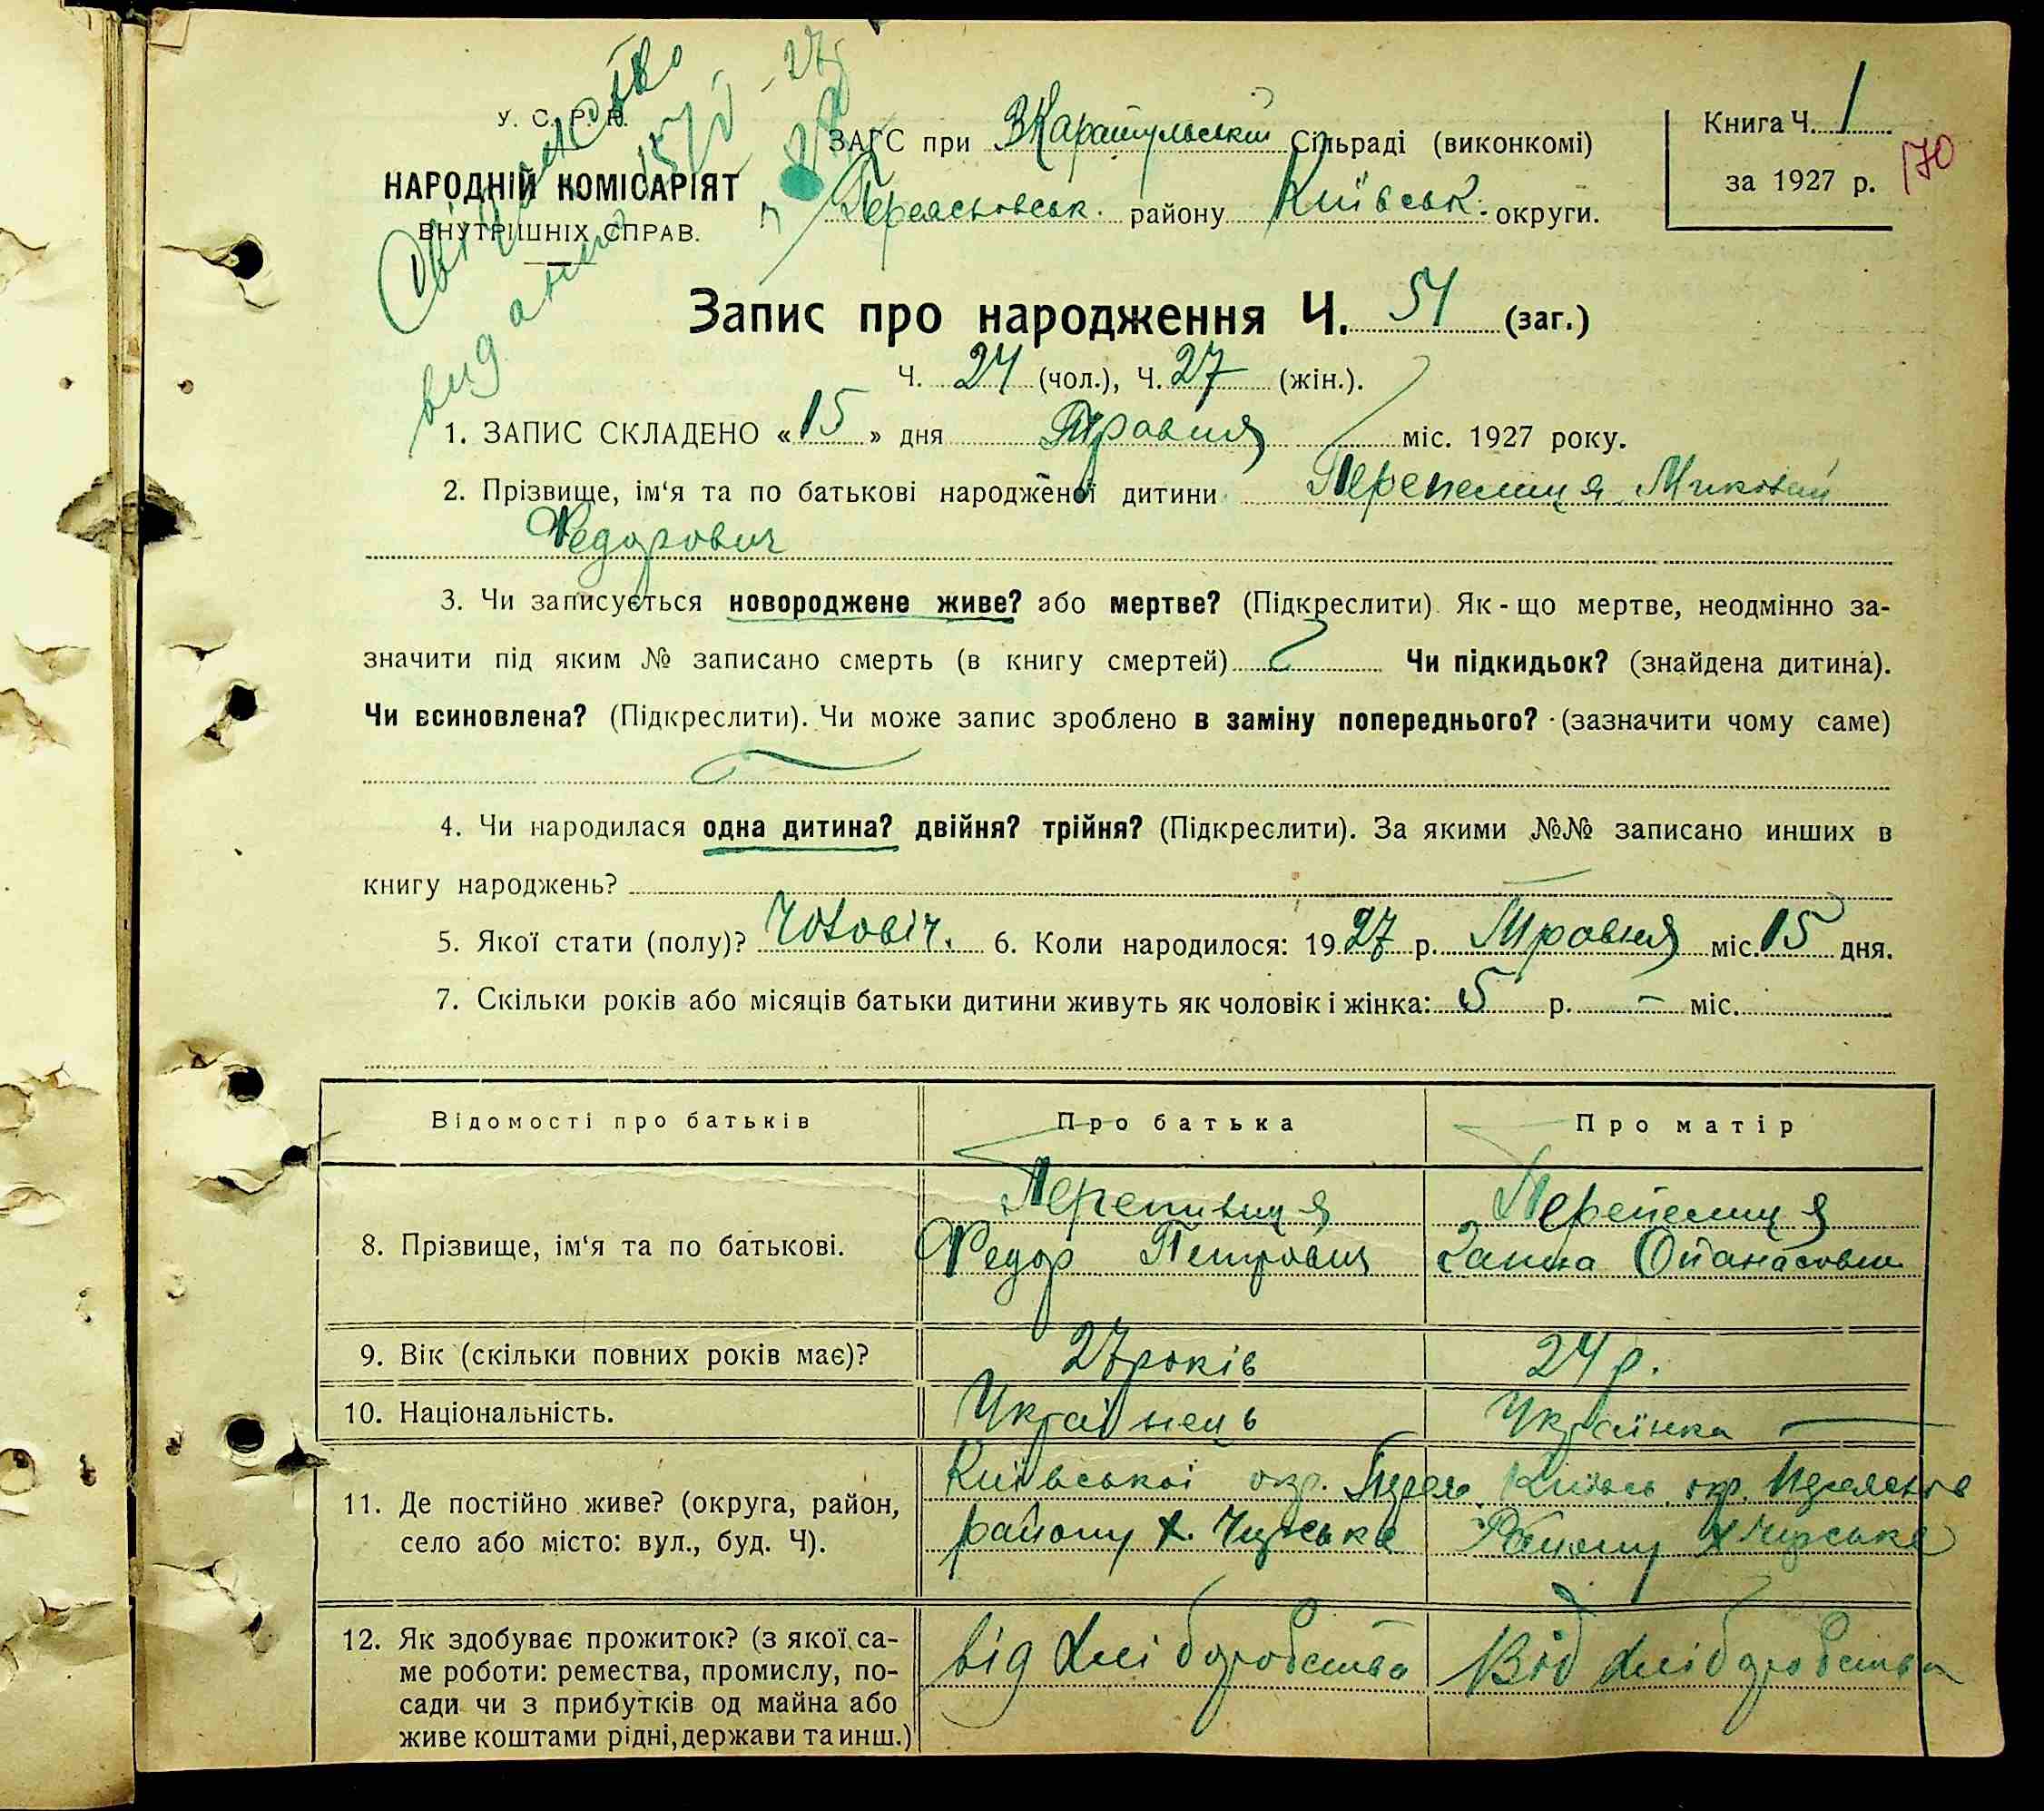 У. С. Р. Р.
НАРОДНІЙ КОМІСАРІЯТ
ВНУТРІШНІХ СПРАВ.
Свідоцтво
видане
ЗАГС при ЗКаратульській Сільраді (виконкомі)
району Київськ. округи.
Книга Ч. 1
за 1927 р.
170
Запис про народження Ч. 51 (заг.)
Ч. 24 (чол.), Ч. 27 (жін.).
1. ЗАПИС СКЛАДЕНО «15» дня Травня міс. 1927 року.
2. Прізвище, ім‘я та по батькові народженої дитини Перепелиця Миколай
Федорович
3. Чи записується новороджене живе? або мертве? (Підкреслити). Як-що мертве, неодмінно за-
значити під яким № записано смерть (в книгу смертей) Чи підкидьок? (знайдена дитина).
Чи всиновлена? (Підкреслити). Чи може запис зроблено в заміну попереднього? (зазначити чому саме)
4. Чи народилася одна дитина? двійня? трійня? (Підкреслити). За якими №№ записано инших в
книгу народжень?
5. Якої стати (полу)? Чоловіч. 6. Коли народилося: 1927 р. Травня міс. 15 дня.
7. Скільки років або місяців батьки дитини живуть як чоловік і жінка: 5 р. – міс.
Відомості про батьків Про батька Про матір
8. Прізвище, ім‘я та по батькові.
Перепилиця
Федор Петрович
Перепелиця
Ганна Опанасовна
9. Вік (скільки повних років має)? 27 років 24 р.
10. Національність. Українець Українка
11. Де постійно живе? (округа, район,
село або місто: вул., буд. Ч).
Київської окр. Переяс.
району х. Чирське
Київсь. окр. Переяслів
Району х Чирське
12. Як здобуває прожиток? (з якої са-
ме роботи: ремества, промислу, по-
сади чи з прибутків од майна або
живе коштами рідні, держави та инш.)
від хліборобства
Від хліборобства